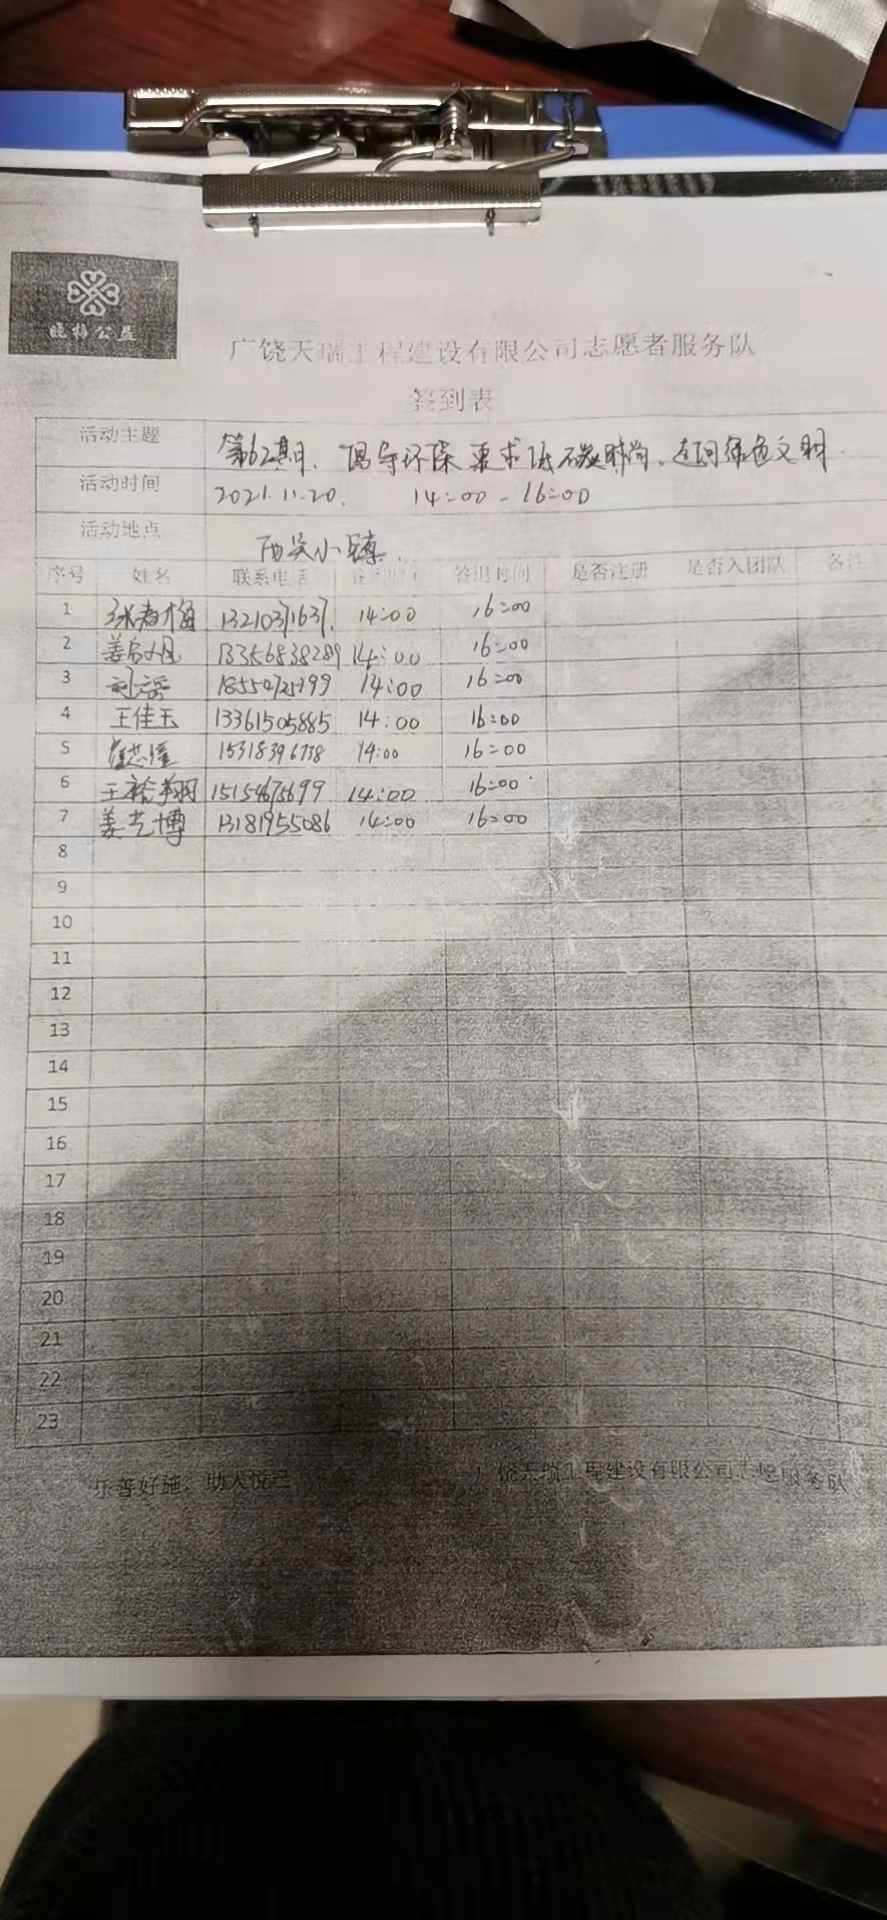 晓梅公益
广饶天瑞工程建设有限公司志愿者服务队
签到表
活动主题 第62期、倡导环保 要求低碳时尚、走向绿色文明
活动时间 2021.11.20. 14:00-16:00
活动地点 西吴小镇.
序号 姓名 联系电话 签到时间 签出时间 是否注册 是否入团队 备注
1 梅 13210371637. 14:00 16:00
2 姜 13356838289 14:00 16:00
3 刘 18550725199 14:00 16:00
4 王佳玉 13361505885 14:00 16:00
5 15318396738 14:00 16:00
6 王翔 15154675699 14:00 16:00
7 姜艺博 13181955086 14:00 16:00
8
9
10
11
12
13
14
15
16
17
18
19
20
21
22
23
乐善好施，助人悦己 广饶天瑞工程建设有限公司志愿服务队